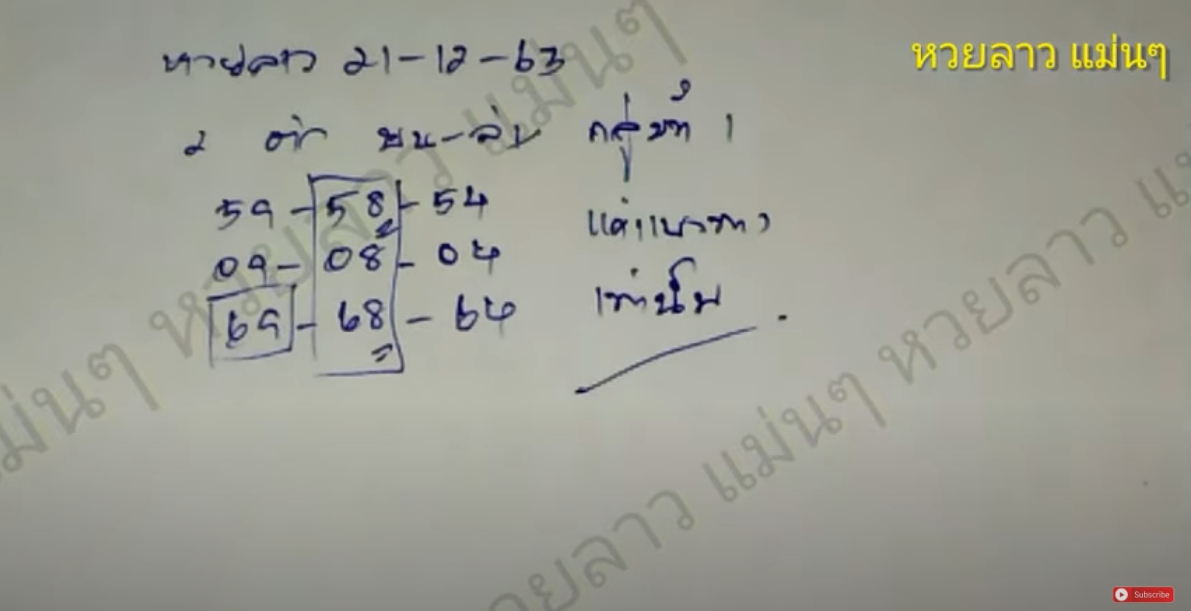 หวยลาว 21-12-63
หวยลาว แม่นๆ
2 ตัว บน-ล่าง กลุ่มที่ 1
59-58-54
09-08-04
69-68-64
แค่แนวทาง
เท่านั้น
หวยลาว แม่นๆ
หวยลาว แม่นๆ หวยลาว แม่นๆ
Subscribe